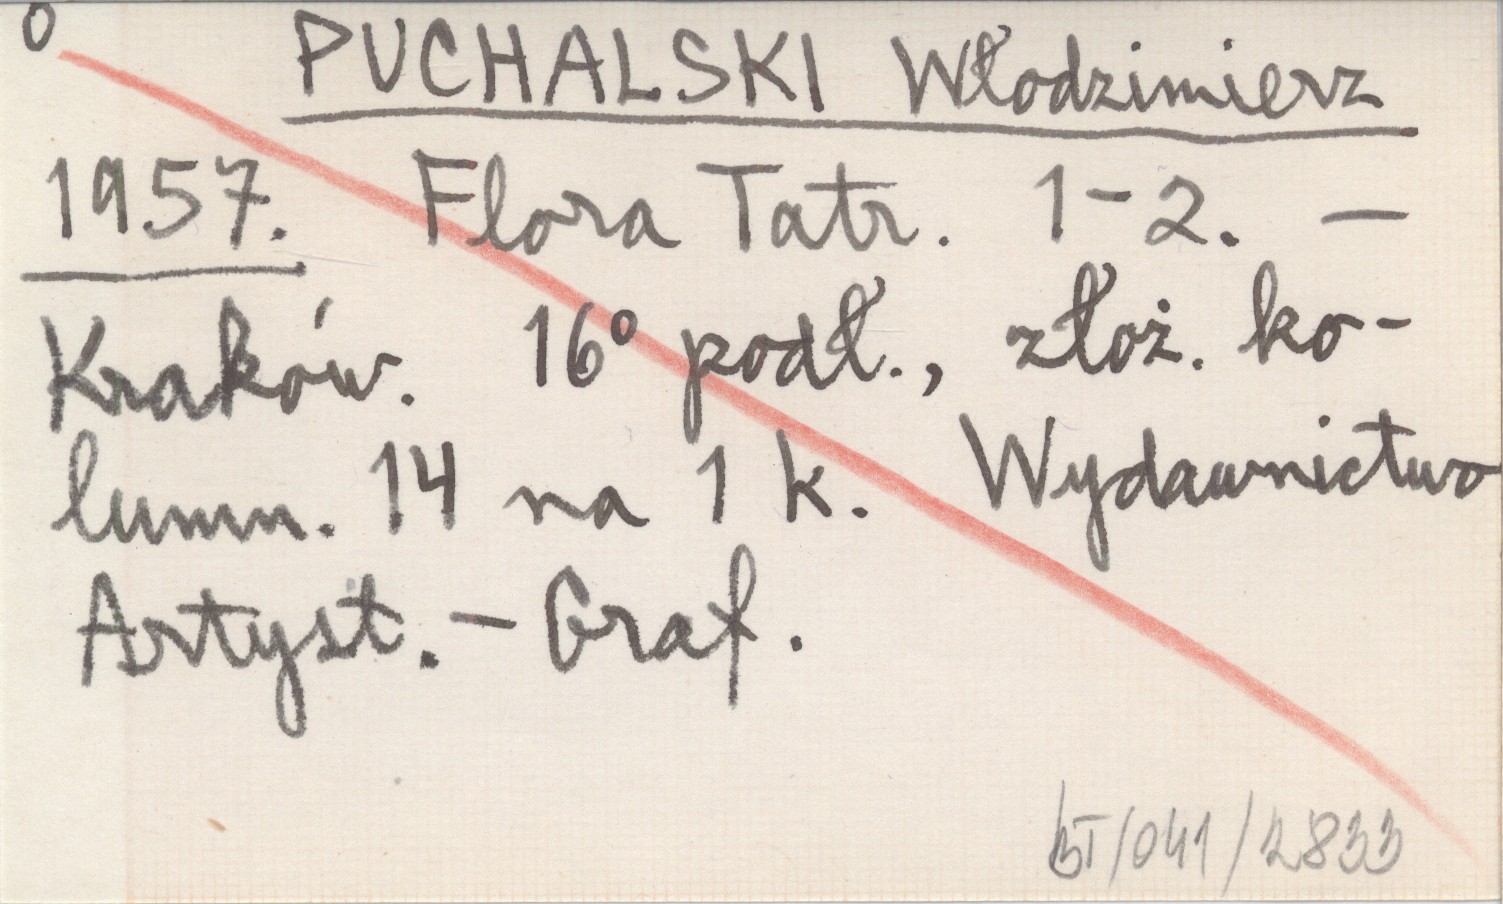 0
PUCHALSKI Włodzimierz
1957. Flora Tatr. 1-2. —
Kraków. 16° podł., złoż. ko-
lumn. 14 na 1 k. Wydawnictwo
Artyst. - Graf.
BT/041/2833